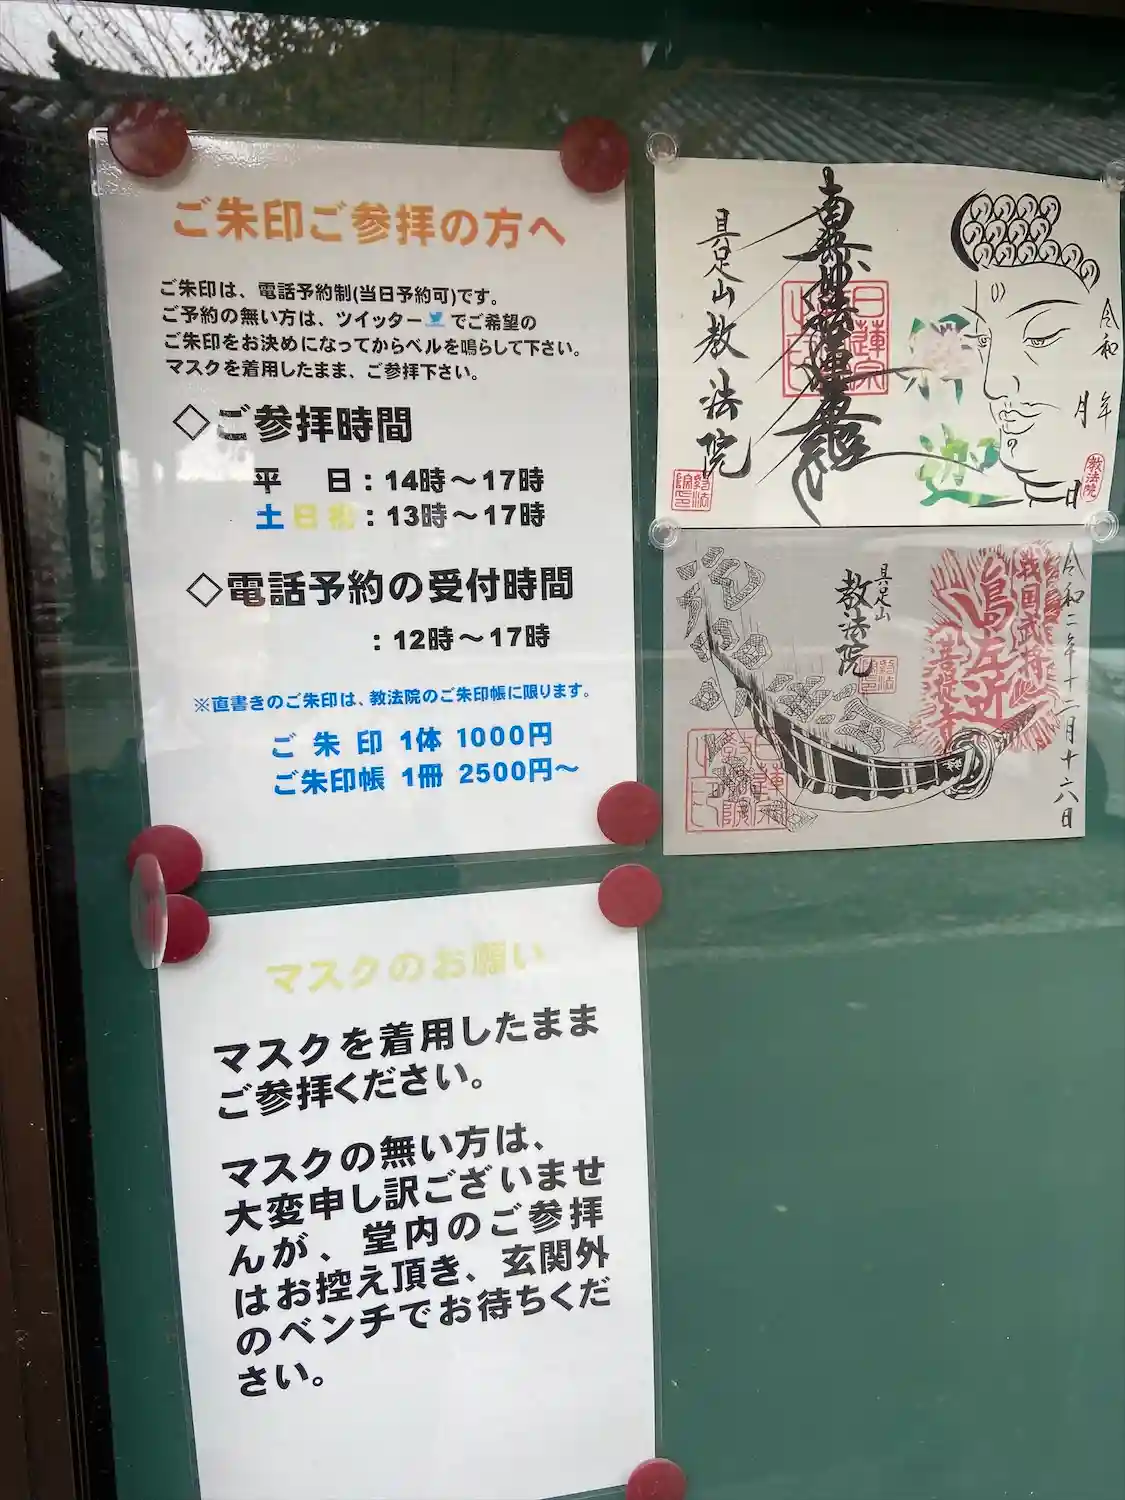 ご朱印ご参拝の方へ
ご朱印は、電話予約制(当日予約可)です。
ご予約の無い方は、ツイッターでご希望の
ご朱印をお決めになってからベルを鳴らして下さい。
マスクを着用したまま、ご参拝下さい。
◇ご参拝時間
平 日：14時～17時
土日祝：13時～17時
◇電話予約の受付時間
：12時～17時
※直書きのご朱印は、教法院のご朱印帳に限ります。
ご 朱 印 1体 1000円
ご朱印帳 1冊 2500円～
マスクのお願い
マスクを着用したまま
ご参拝ください。
マスクの無い方は、
大変申し訳ございませ
んが、堂内のご参拝
はお控え頂き、玄関外
のベンチでお待ちくだ
さい。
令和 年
月
日
釈迦
教法院
日蓮宗
具足山教法院
令和二年十二月十六日
戦国武将
島左近
菩提寺
具足山
教法院